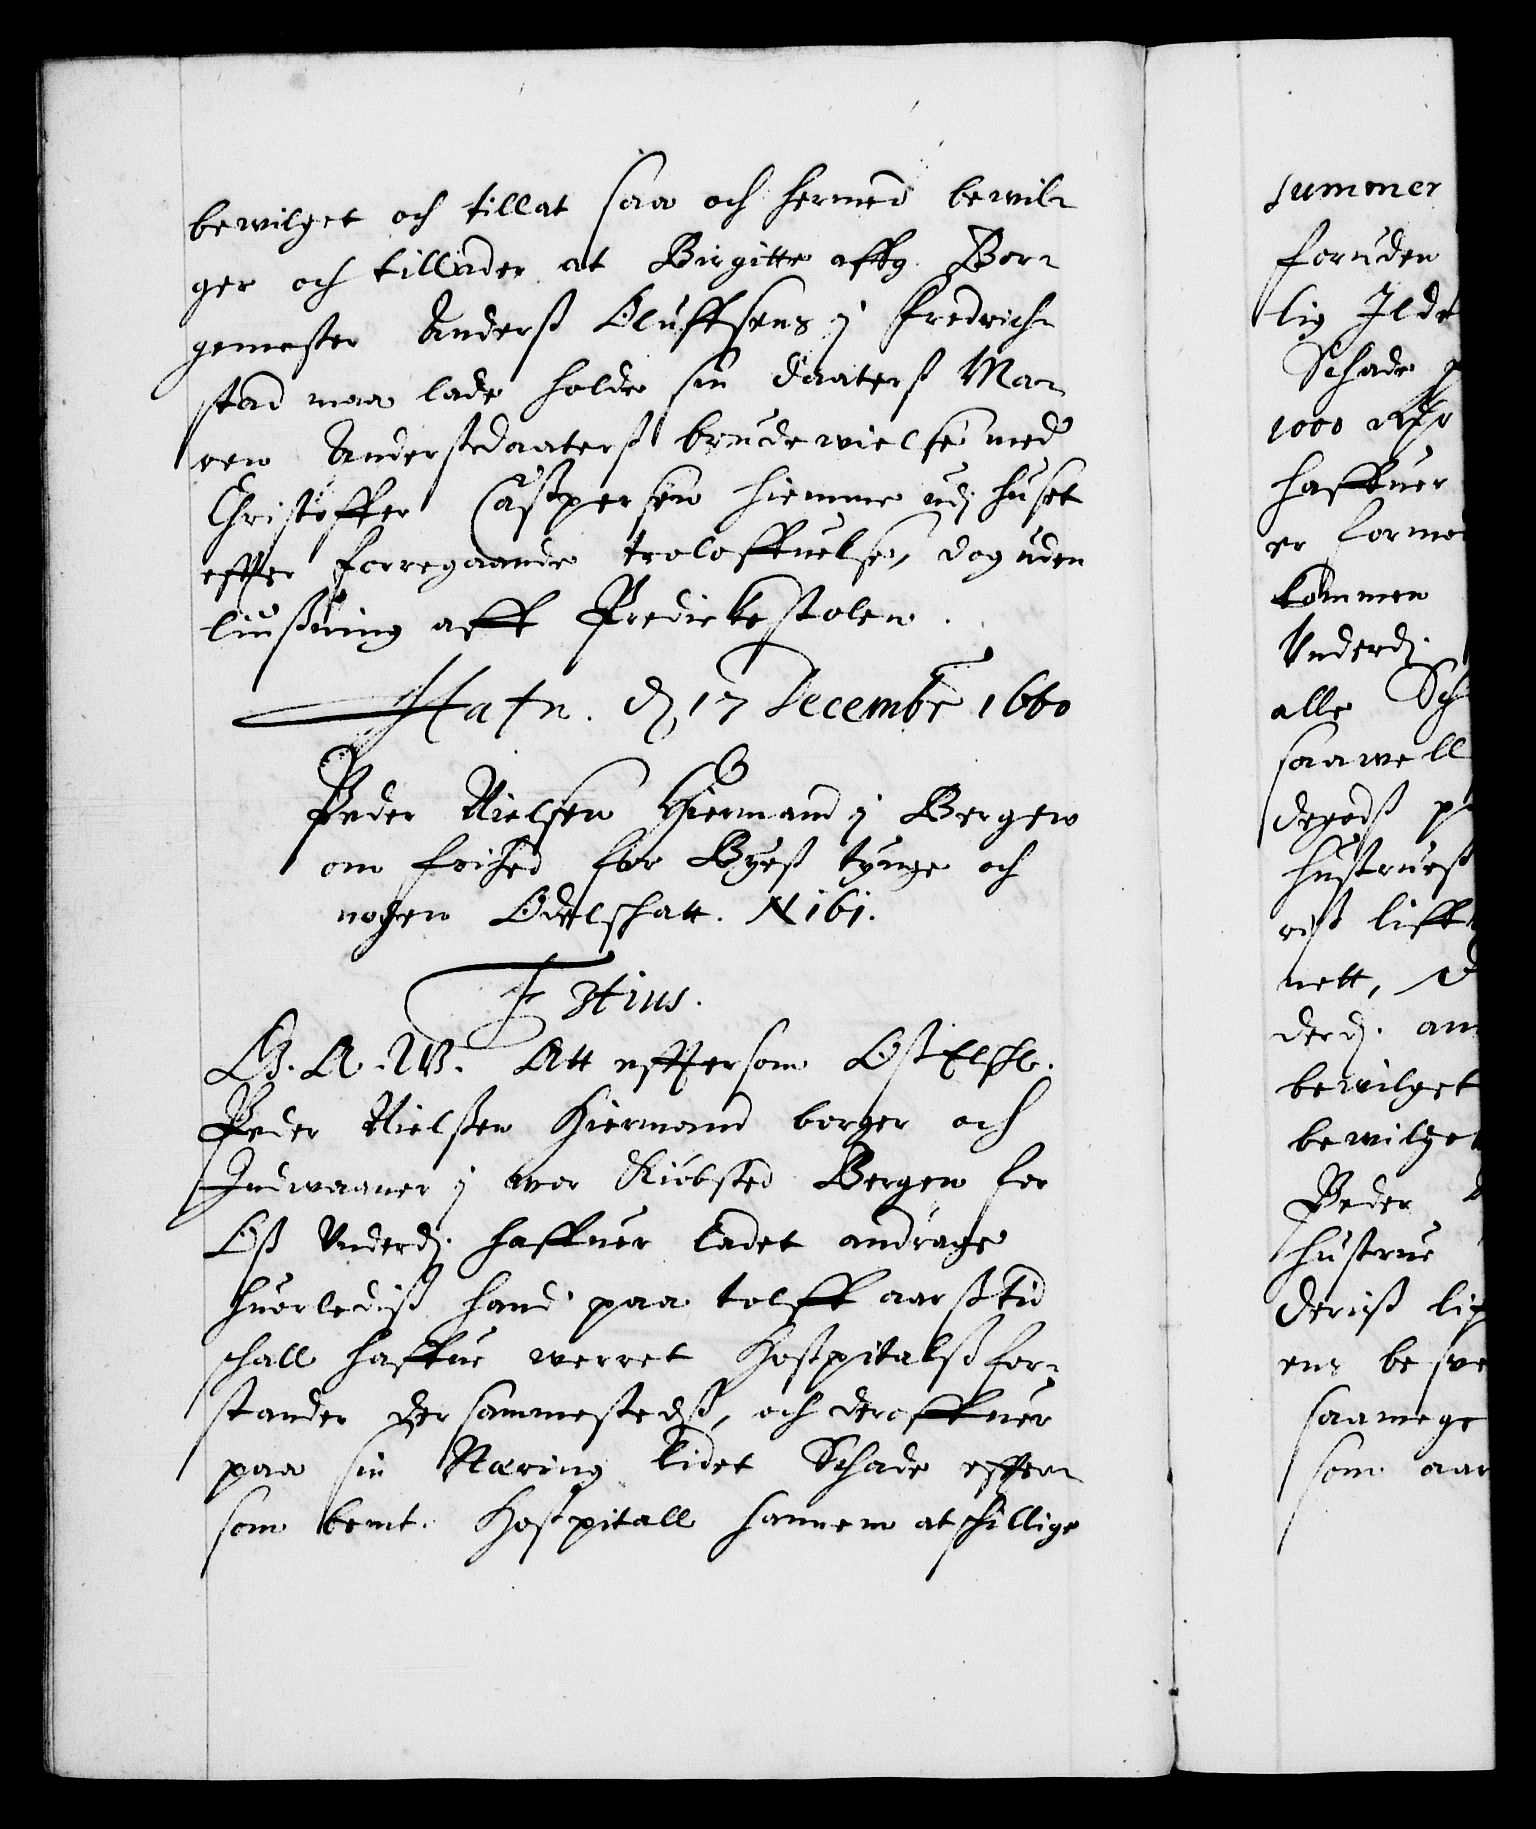 bewilget och tillat saa och hermed bewil-
ger och tillader at Birgitte affg. Bor-
gemester Anderß Oluffsens j Fredrich-
stad maa lade holde sin daaterß Ma-
ren Anderßdaaterß brudewielse med
Christoffer Caßpersen hiemme udj huset
effter forregaande troloffuelse, dog uden
liußning aff Predickestolen.
Hafn. dj 17 Decembr 1660
Peder Nielsen Hiermand j Bergen
om frihed for Byeß tynge och
nogen Odelschatt. N 161.
F 3tius.
G. A. W. Att efftersom Oß Elschl.
Peder Nielßen Hiermand borger och
Indwaaner j wor Kiøbsted Bergen for
Oß Underdj. haffuer ladet andrage
huorlediß hand paa tolff aarß tid
schall haffue werret Hospitalß for-
stander der sammestedß, och deroffuer
paa sin Næring lidet Schade effter-
som bemt. Hospitall hannem atschillige
summer
foruden
lig Ilde
Schade
1000 Rdr
haffuer
er forme
kommen
Underdj.
alle Sch
saawell
degodß
hustrueß
riß liff
nett,
derdj. an
bewilget
bewilge
Peder
hustrue
deriß li
ens besve
saamege
som aar